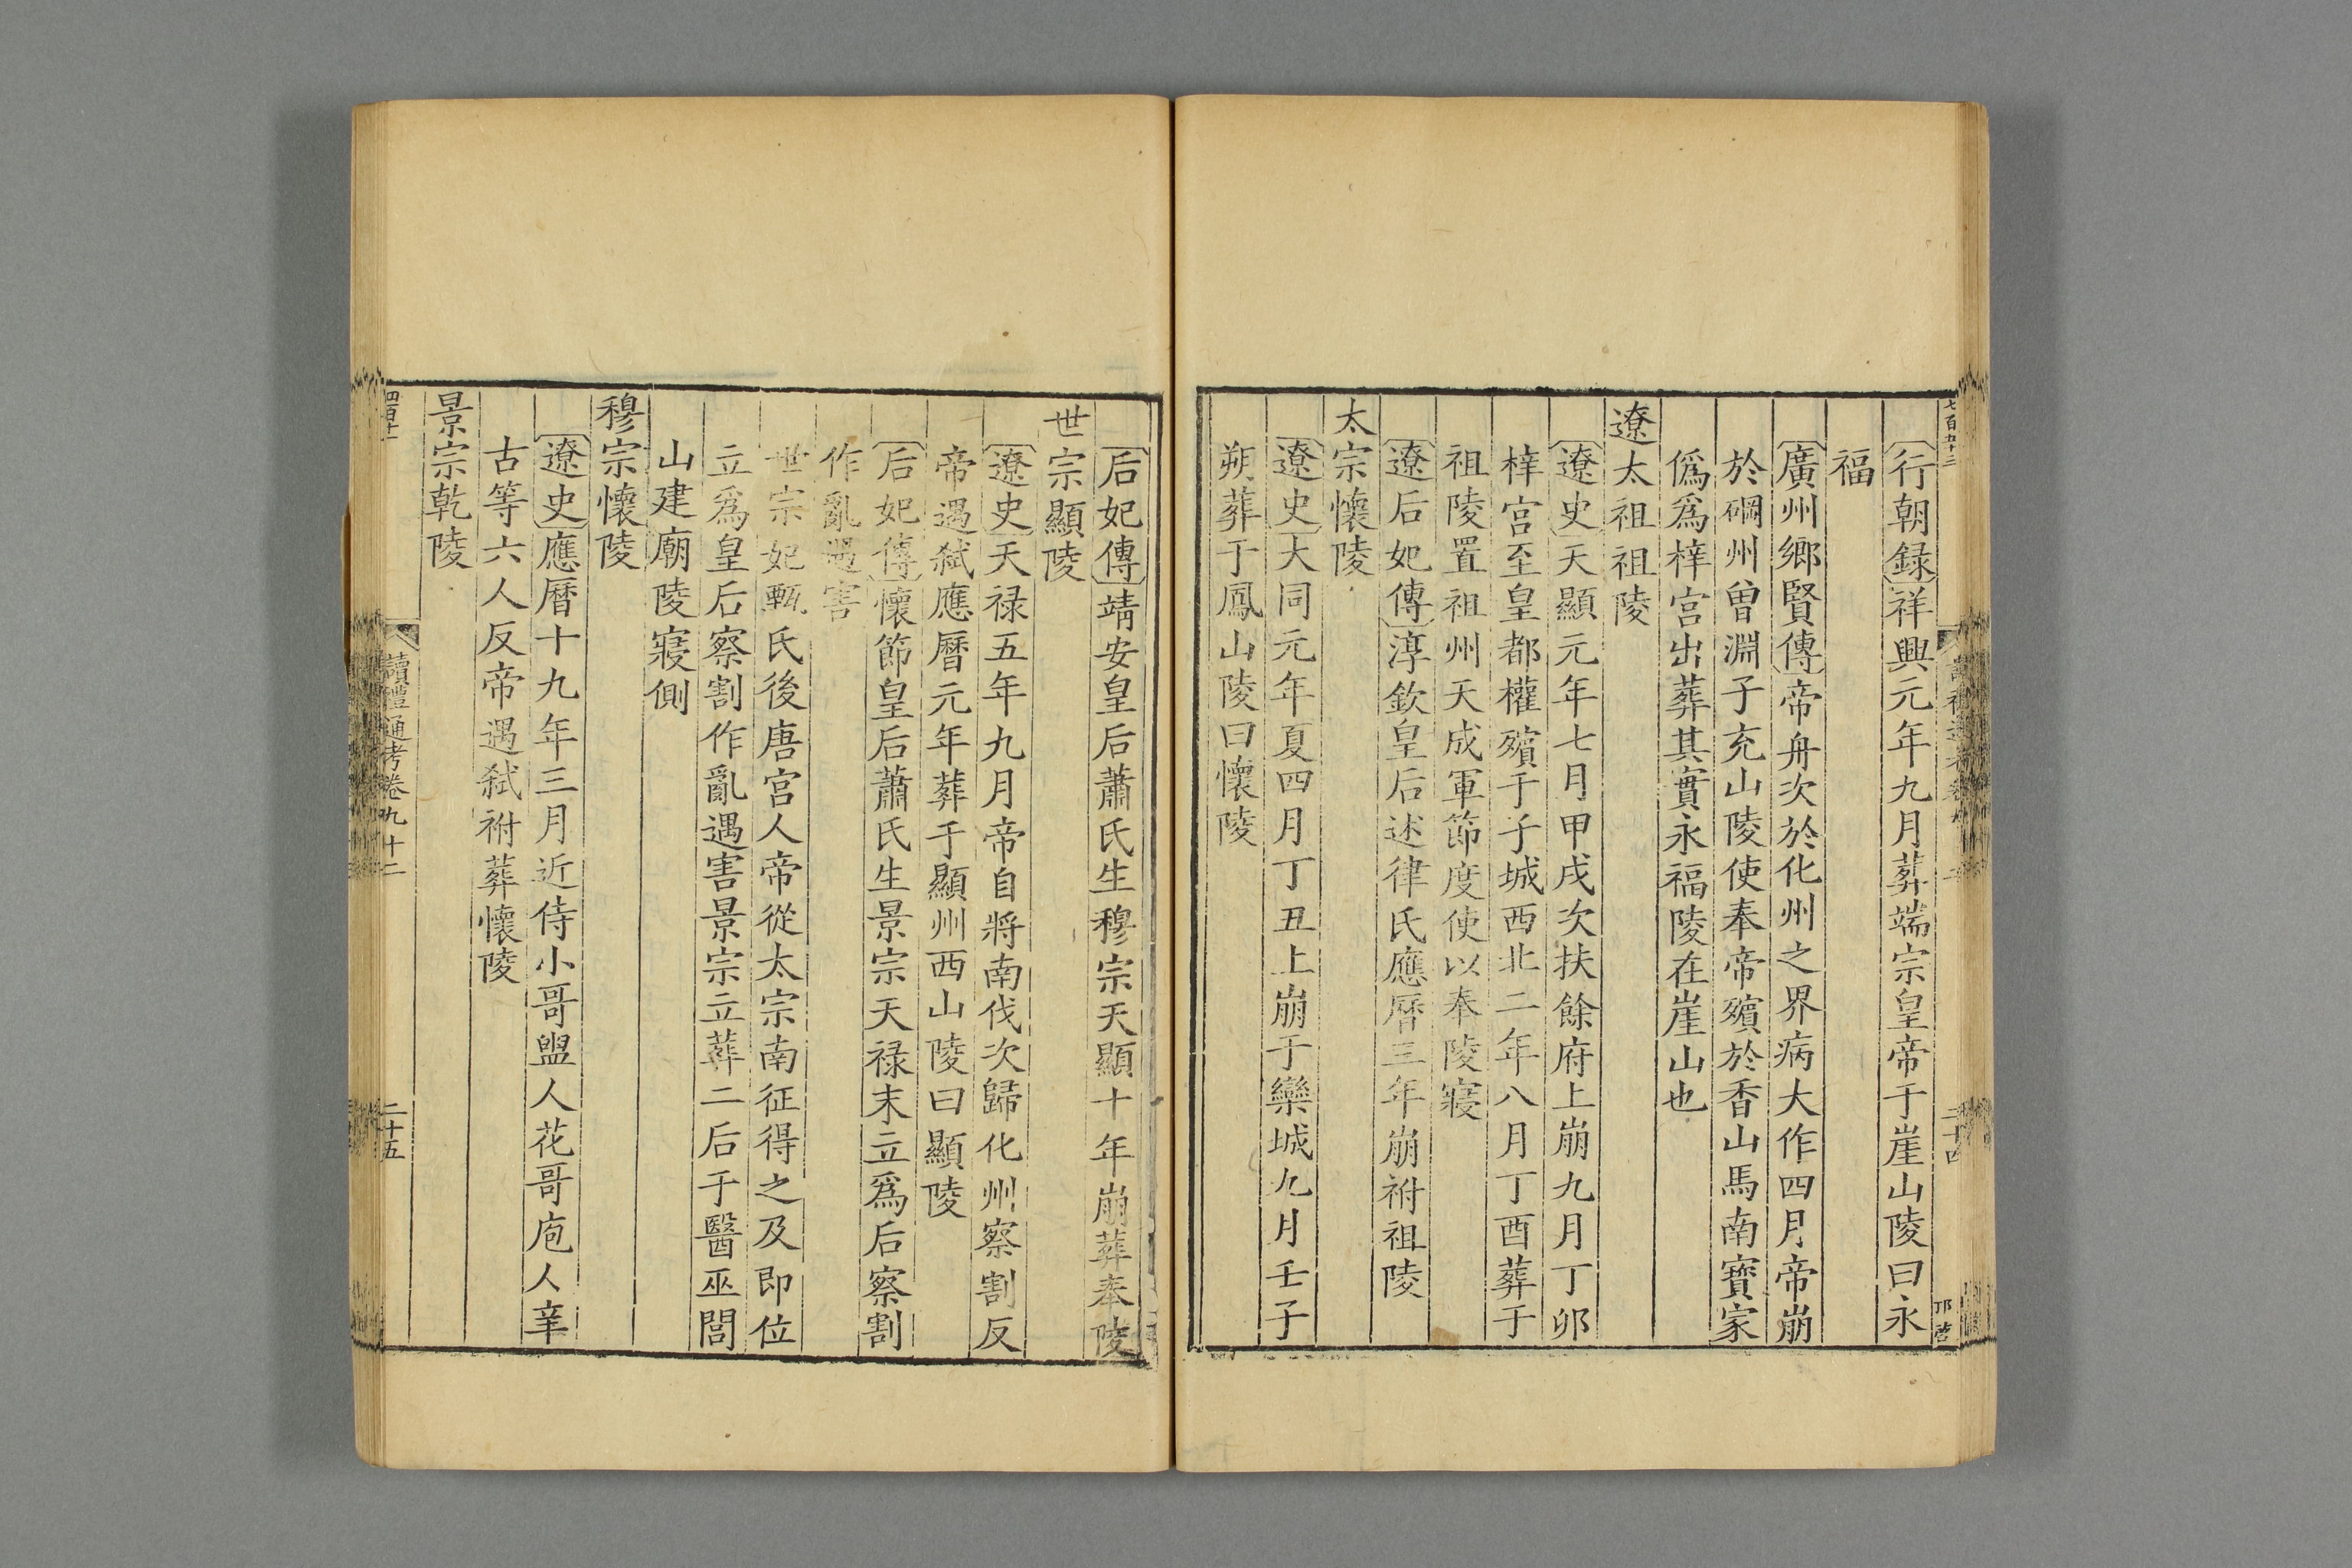 七百五十三
二十四
行朝録祥興元年九月葬端宗皇帝于崖山陵曰永
福
廣州鄉賢傳帝舟次於化州之界病大作四月帝崩
於碙州曾淵子充山陵使奉帝殯於香山馬南寶家
僞爲梓宮出葬其實永福陵在崖山也
遼太祖祖陵
遼史天顯元年七月甲戌次扶餘府上崩九月丁卯
梓宮至皇都權殯于子城西北二年八月丁酉葬于
祖陵置祖州天成軍節度使以奉陵寢
遼后妃傳淳欽皇后述律氏應曆三年崩祔祖陵
太宗懷陵
遼史大同元年夏四月丁丑上崩于欒城九月壬子
朔葬于鳳山陵曰懷陵
后妃傳靖安皇后蕭氏生穆宗天顯十年崩葬奉陵
世宗顯陵
遼史天禄五年九月帝自將南伐次歸化州察割反
帝遇弑應曆元年葬于顯州西山陵曰顯陵
后妃傳懷節皇后蕭氏生景宗天禄末立爲后察割
作亂遇害
世宗妃甄氏後唐宮人帝從太宗南征得之及即位
立爲皇后察割作亂遇害景宗立葬二后于醫巫閭
山建廟陵寢側
穆宗懷陵
遼史應曆十九年三月近侍小哥盥人花哥庖人辛
古等六人反帝遇弑祔葬懷陵
景宗乾陵
讀禮通考卷九十二
二十五